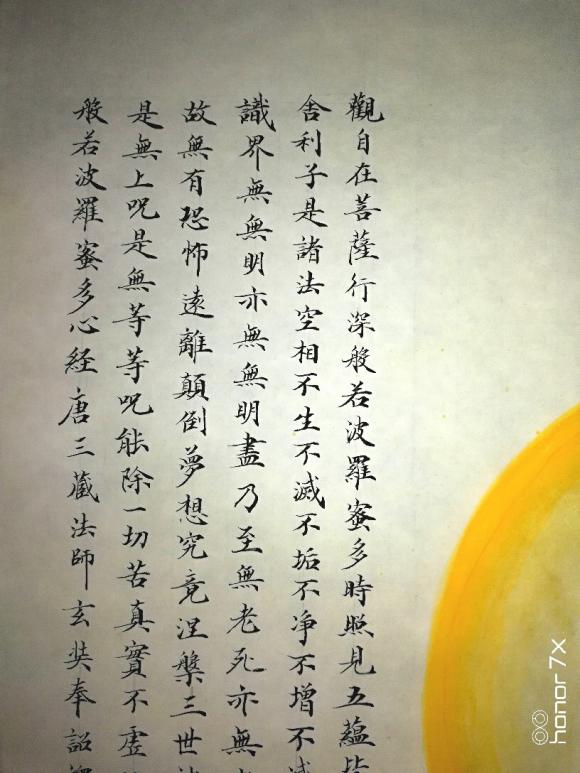 觀自在菩薩行深般若波羅蜜多時照見五蘊皆
舍利子是諸法空相不生不滅不垢不净不增不減
識界無無明亦無無明盡乃至無老死亦無
故無有恐怖遠離顛倒夢想究竟涅槃三世
是無上呪是無等等呪能除一切苦真實不虛
般若波羅蜜多心経唐三蔵法師玄奘奉詔
honor 7X